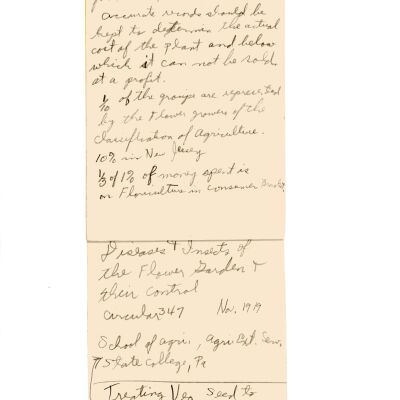 accurate records should be
kept to determin the actual
cost of the plant and below
which it can not be sold
at a profit.
1/10 of the groups are represented
by the Flower growers of the
classification of agriculture.
10% in New Jersey
1/3 of 1% of money spent is
on Floriculture in consumer
Diseases & Insects of
the Flower Garden &
their control
circular 347 Nov. 1919
School of agri., Agri Ext. Serv.
State College, Pa
Treating Veg seed to